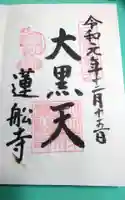 令和元年十二月十五日
大黒天
蓮舩寺